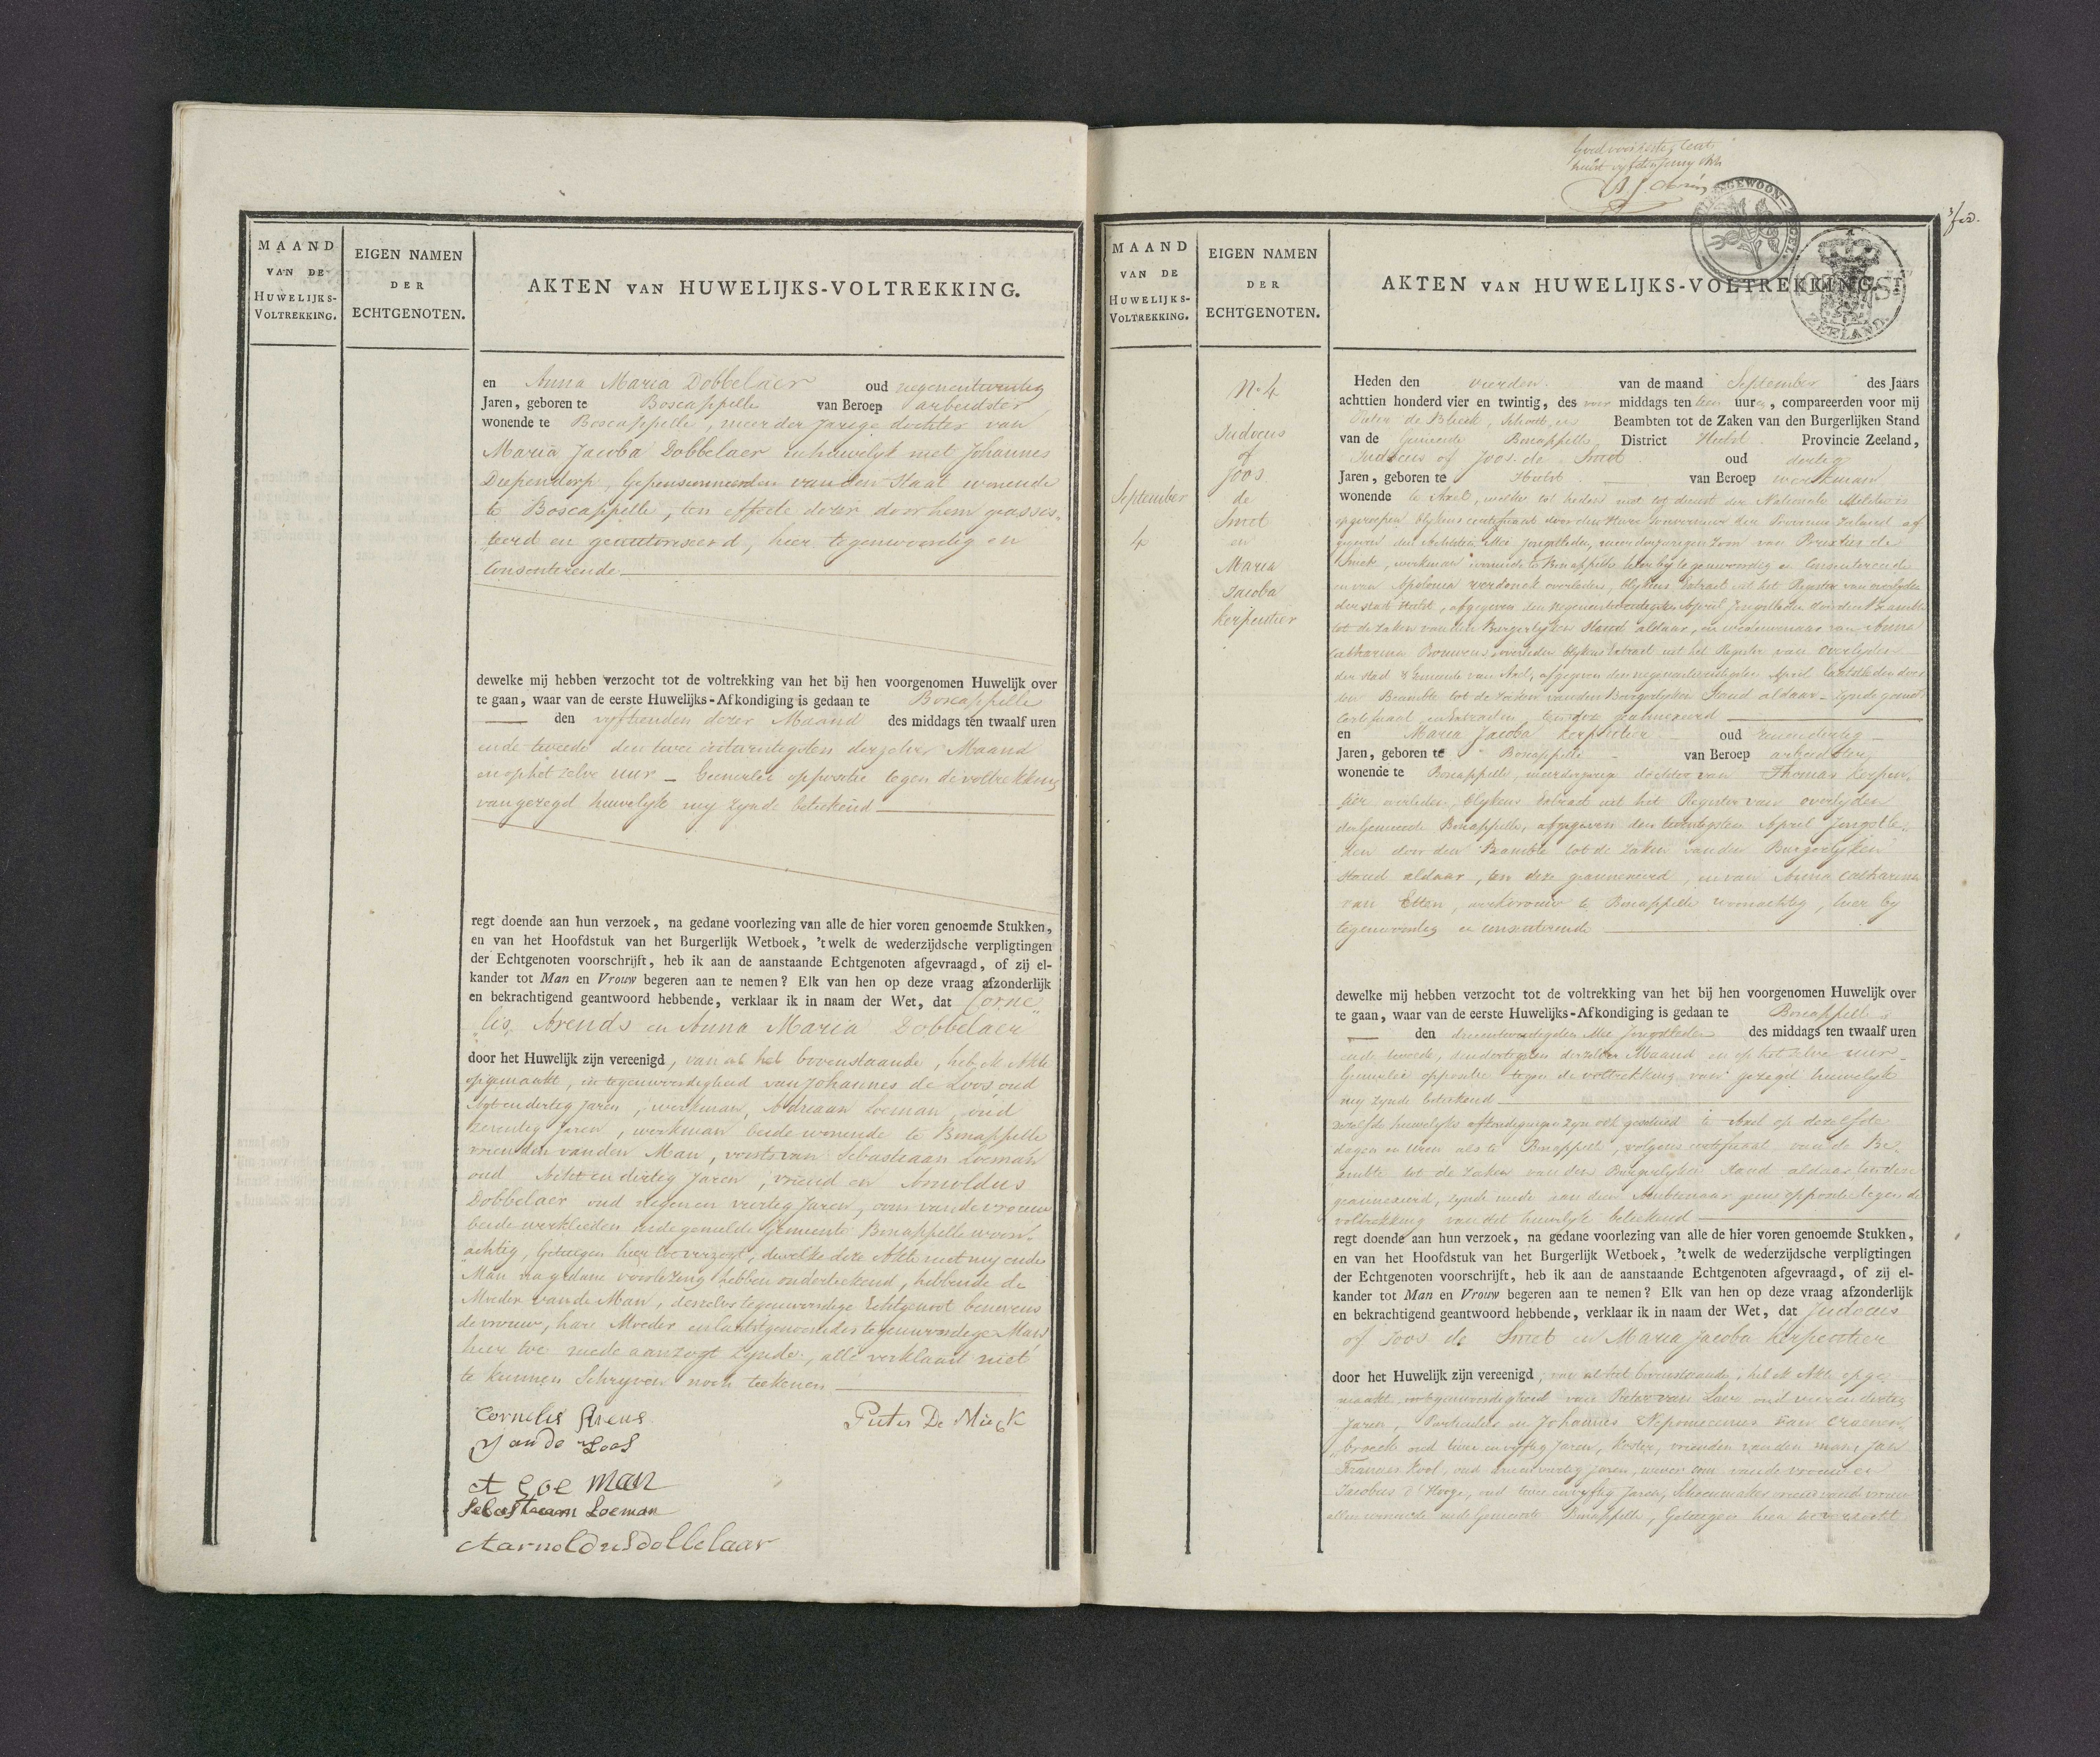 MAAND
VAN DE
HUWELIJKS-
VOLTREKKING.
EIGEN NAMEN
DER
ECHTGENOTEN.
AKTEN VAN HUWELIJKS-VOLTREKKING.
en Anna Maria Dobbelaer oud negenentwintig
Jaren, geboren te Boscappelle van Beroep arbeidster
wonende te Boscappelle, meerderjarige dochter van
Maria Jacoba Dobbelaer in huwelijk met Johannes
Diependorp, Gepensionneerden van den Staat wonende
te Boscappelle, ten effecte dezer door hem geassis-
teerd en geautoriseerd, hier tegenwoordig en
Consenterende
dewelke mij hebben verzocht tot de voltrekking van het bij hen voorgenomen Huwelijk over
te gaan, waar van de eerste Huwelijks-Afkondiging is gedaan te Boscappelle
den vyftienden dezer Maand des middags ten twaalf uren
ende tweede den twee entwintigsten derzelver Maand
en op het zelve uur - Geenerlei oppositie tegen de voltrekking
van gezegd huwelijk my zynde betekend
regt doende aan hun verzoek, na gedane voorlezing van alle de hier voren genoemde Stukken,
en van het Hoofdstuk van het Burgerlijk Wetboek, 't welk de wederzijdsche verpligtingen
der Echtgenoten voorschrijft, heb ik aan de aanstaande Echtgenoten afgevraagd, of zij el-
kander tot Man en Vrouw begeren aan te nemen? Elk van hen op deze vraag afzonderlijk
en bekrachtigend geantwoord hebbende, verklaar ik in naam der Wet, dat Corne-
lis Arends en Anna Maria Dobbelaer
door het Huwelijk zijn vereenigd, van al het bovenstaande, heb ik Akte
opgemaakt, in tegenwoordigheid van Johannes de Loos oud
Agt en dertig Jaren, werkman, Adriaan Loeman, oud
zeventig Jaren, werkman beide wonende te Boscappelle
vrienden van den Man, voorts van Sebastiaan Loeman
oud en dertig Jaren, vriend en Arnoldus
Dobbelaer oud negen en veertig Jaren, oom van de vrouw
beide werklieden in de gemelde Gemeente Boscappelle woon-
achtig, Getuigen hier toe verzogt, dewelke deze Akte met my ende
Man na gedane voorlezing hebben onderteekend, hebbende de
Moeder van de Man, deszelvs tegenwoordige Echtgenoot benevens
de vrouw, hare Moeder en laatstgenoemdes tegenwoordige Man
hier toe mede aanzogt zynde, alle verklaard niet
te kunnen Schryven noch teekenen
Cornelis Arens
Pieter De Mück
J an de Loos
A Loe man
Sebastiaan Loeman
Aarnoldus dobbelaar
MAAND
VAN DE
HUWELIJKS-
VOLTREKKING.
EIGEN NAMEN
DER
ECHTGENOTEN.
AKTEN VAN HUWELIJKS-VOLTREKKING.
ZEELAND.
September
4
No 4
Judocus
of
Joos
de
Smet
en
Maria
Jacoba
Kerpentier
Heden den vierden van de maand September des Jaars
achttien honderd vier en twintig, des voor middags ten tien uure, compareerden voor mij
Pieter de Schout, Beambten tot de Zaken van den Burgerlijken Stand
van de Gemeente Boscappelle District Hulst Provincie Zeeland,
Judocus of Joos de Smet oud dertig
Jaren, geboren te Hulst van Beroep werkman
wonende te Axel, welke tot heden niet tot dienst der Nationale Militie is
opgeroepen blykens certificaat door den Heere Gouverneur der Provincie Zeeland af
gegeven den Mei Jongstleden, meerderjarigen Zoon van de
Smet, werkman wonende te Boscappelle hier by tegenwoordig en Consenterende
en van Apolonia verdonck overleden, blykens Extract uit het Register van overlyden
der stad Hulst, afgegeven den negenentwintigsten April Jongstleden door den Beambte
tot de Zaken van den Burgerlyken Stand aldaar, en weduwenaar van Anna
Catharina Bouwens, overleden blykens Extract uit het Register van Overlyden
der stad & Gemeente van Axel, afgegeven den negenentwintigsten April laatstleden door
den Beambte tot de Zaken van den Burgerlyken Stand aldaar - Zynde gemeld
Certificaat en Extracten ten deze geannexeerd
en Maria Jacoba Kerpentier oud eenendertig
Jaren, geboren te Boscappelle van Beroep arbeidster
wonende te Boscappelle, meerderjarige dochter van Thomas Kerpen-
tier overleden, blykens Extract uit het Register van overlyden
der Gemeente Boscappelle, afgegeven den twintigsten April Jongstle-
den door den Beambte tot de Zaken van den Burgerlyken
Stand aldaar, ten deze geannexeerd, en van Anna Catharina
van Etten, werkvrouw te Boscappelle woonachtig, hier by
tegenwoordig en consenterende
dewelke mij hebben verzocht tot de voltrekking van het bij hen voorgenomen Huwelijk over
te gaan, waar van de eerste Huwelijks-Afkondiging is gedaan te Boscappelle
den drieentwintigsten Mei Jongstleden des middags ten twaalf uren
ende tweede, den dertigsten derzelver Maand en op het zelve uur -
Geenerlei oppositie tegen de voltrekking van gezegd huwelijk
my zynde betekend
dezelfde huwelijks afkondigingen zyn ook geschied te Axel op dezelfde
dagen en uren als te Boscappelle, volgens certificaat van de Be-
ambte tot de Zaken van den Burgerlyken Stand aldaar ten deze
geannexeerd, zynde mede aan dien Ambtenaar geene oppositie tegen de
voltrekking van dit huwelijk betekend
regt doende aan hun verzoek, na gedane voorlezing van alle de hier voren genoemde Stukken,
en van het Hoofdstuk van het Burgerlijk Wetboek, 't welk de wederzijdsche verpligtingen
der Echtgenoten voorschrijft, heb ik aan de aanstaande Echtgenoten afgevraagd, of zij el-
kander tot Man en Vrouw begeren aan te nemen? Elk van hen op deze vraag afzonderlijk
en bekrachtigend geantwoord hebbende, verklaar ik in naam der Wet, dat Judocus
of Joos de Smet en Maria Jacoba Kerpentier
door het Huwelijk zijn vereenigd, van al het bovenstaande, heb ik Akte opge-
maakt, in tegenwoordigheid van Pieter van Laere oud vierendertig
Jaren, Particulier en Johannes Nepomucenus van Craenen-
broeck oud twee en vyftig Jaren, Koster, vrienden van den man, Jan
Francies Kool, oud drieenveertig jaren, wever oom van de vrouw en
Jacobus d'Hooge, oud twee en vyftig Jaren, Schoenmaker vriend van de vrouw
allen wonende in de Gemeente Boscappelle, Getuigen hier toe verzocht